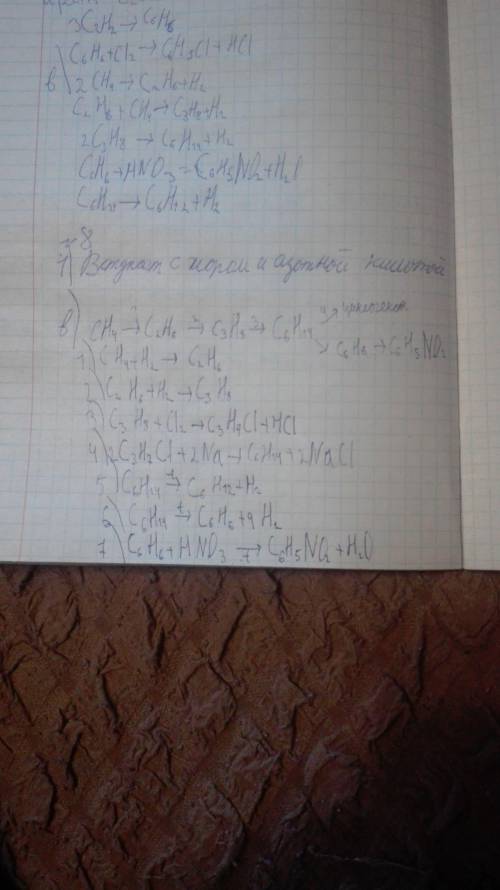 3C2H2→C6H6
C6H6+Cl2→C6H5Cl+HCl
в) 2CH4→C2H6+H2
C2H6+CH4→C3H8+H2
2C3H8→C6H14+H2
C6H6+HNO3=C6H5NO2+H2O
C6H14→C6H12+H2
8
1) с хлором и азотной кислотой
в) CH4→C2H6→C3H8→C6H14
→C6H6→C6H5NO2
1) CH4+H2→C2H6
2) C2H6+H2→C3H8
3) C3H8+Cl2→C3H7Cl+HCl
4) 2C3H7Cl+2Na→C6H14+2NaCl
5) C6H14→C6H12+H2
6) C6H14→C6H6+4H2
7) C6H6+HNO3→C6H5NO2+H2O